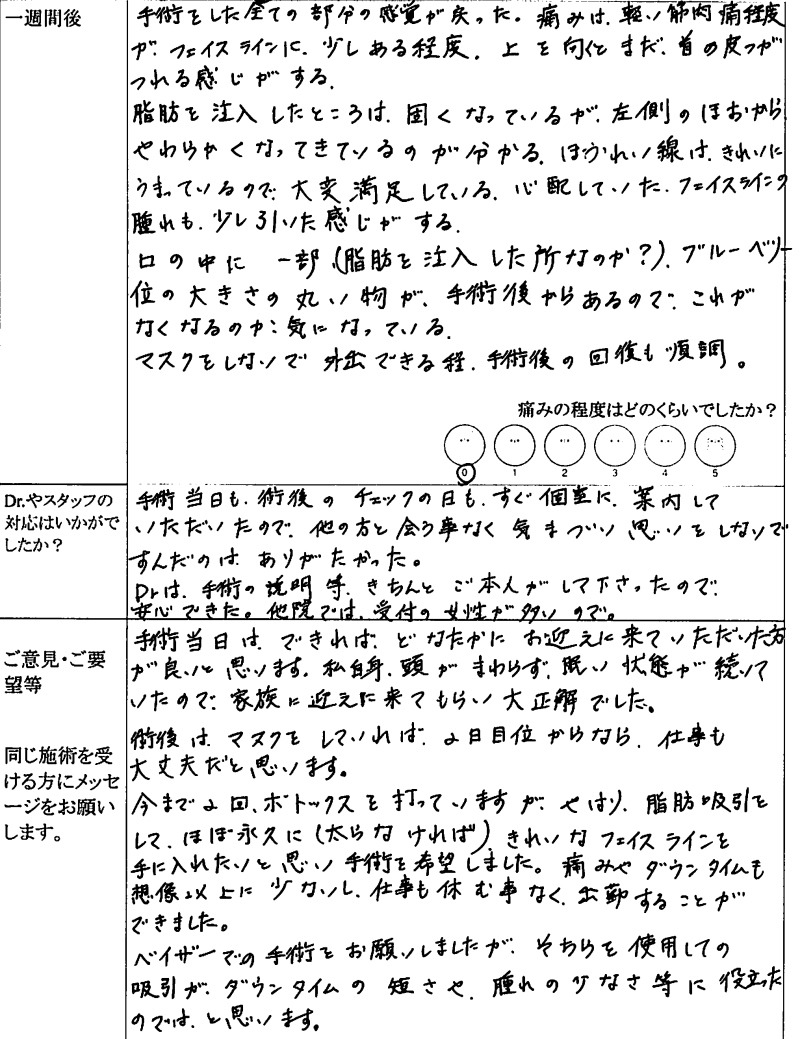 一週間後
手術をした全ての部分の感覚が戻った。痛みは、軽い筋肉痛程度
が、フェイスラインに、少しある程度。上を向くとまだ、首の皮ふが
つれる感じがする。
脂肪を注入したところは、固くなっているが、左側のほおから
やわらかくなってきているのが分かる。ほうれい線は、きれいに
うまっているので、大変満足している。心配していた、フェイスラインの
腫れも、少し引いた感じがする。
口の中に 一部(脂肪を注入した所なのか?)、ブルーベリー
位の大きさの丸い物が、手術後からあるので、これが
なくなるのか気になっている。
マスクをしないで外出できる程、手術後の回復も順調。
痛みの程度はどのくらいでしたか?
0 1 2 3 4 5
Dr.やスタッフの
対応はいかがで
したか?
手術当日も、術後のチェックの日も、すぐ個室に、案内して
いただいたので、他の方と会う事なく気まづい思いをしないで
すんだのは ありがたかった。
Drは、手術の説明等、きちんとご本人がして下さったので、
安心できた。他院では、受付の女性が多いので。
ご意見・ご要
望等
手術当日は、できれば、どなたかにお迎えに来ていただいた方
が良いと思います。私自身、頭がまわらず、眠い状態が続いて
いたので、家族に迎えに来てもらい大正解でした。
同じ施術を受
ける方にメッセ
ージをお願い
します。
術後は、マスクをしていれば、2日目位からなら、仕事も
大丈夫だと思います。
今まで2回、ボトックスを打っていますが、やはり、脂肪吸引を
して、ほぼ永久に(太らなければ)、きれいなフェイスラインを
手に入れたいと思い手術を希望しました。痛みやダウンタイムも
想像以上に少ないし、仕事も休む事なく、出勤することが
できました。
ベイザーでの手術をお願いしましたが、そちらを使用しての
吸引が、ダウンタイムの短さや、腫れの少なさ等に役立った
のでは、と思います。